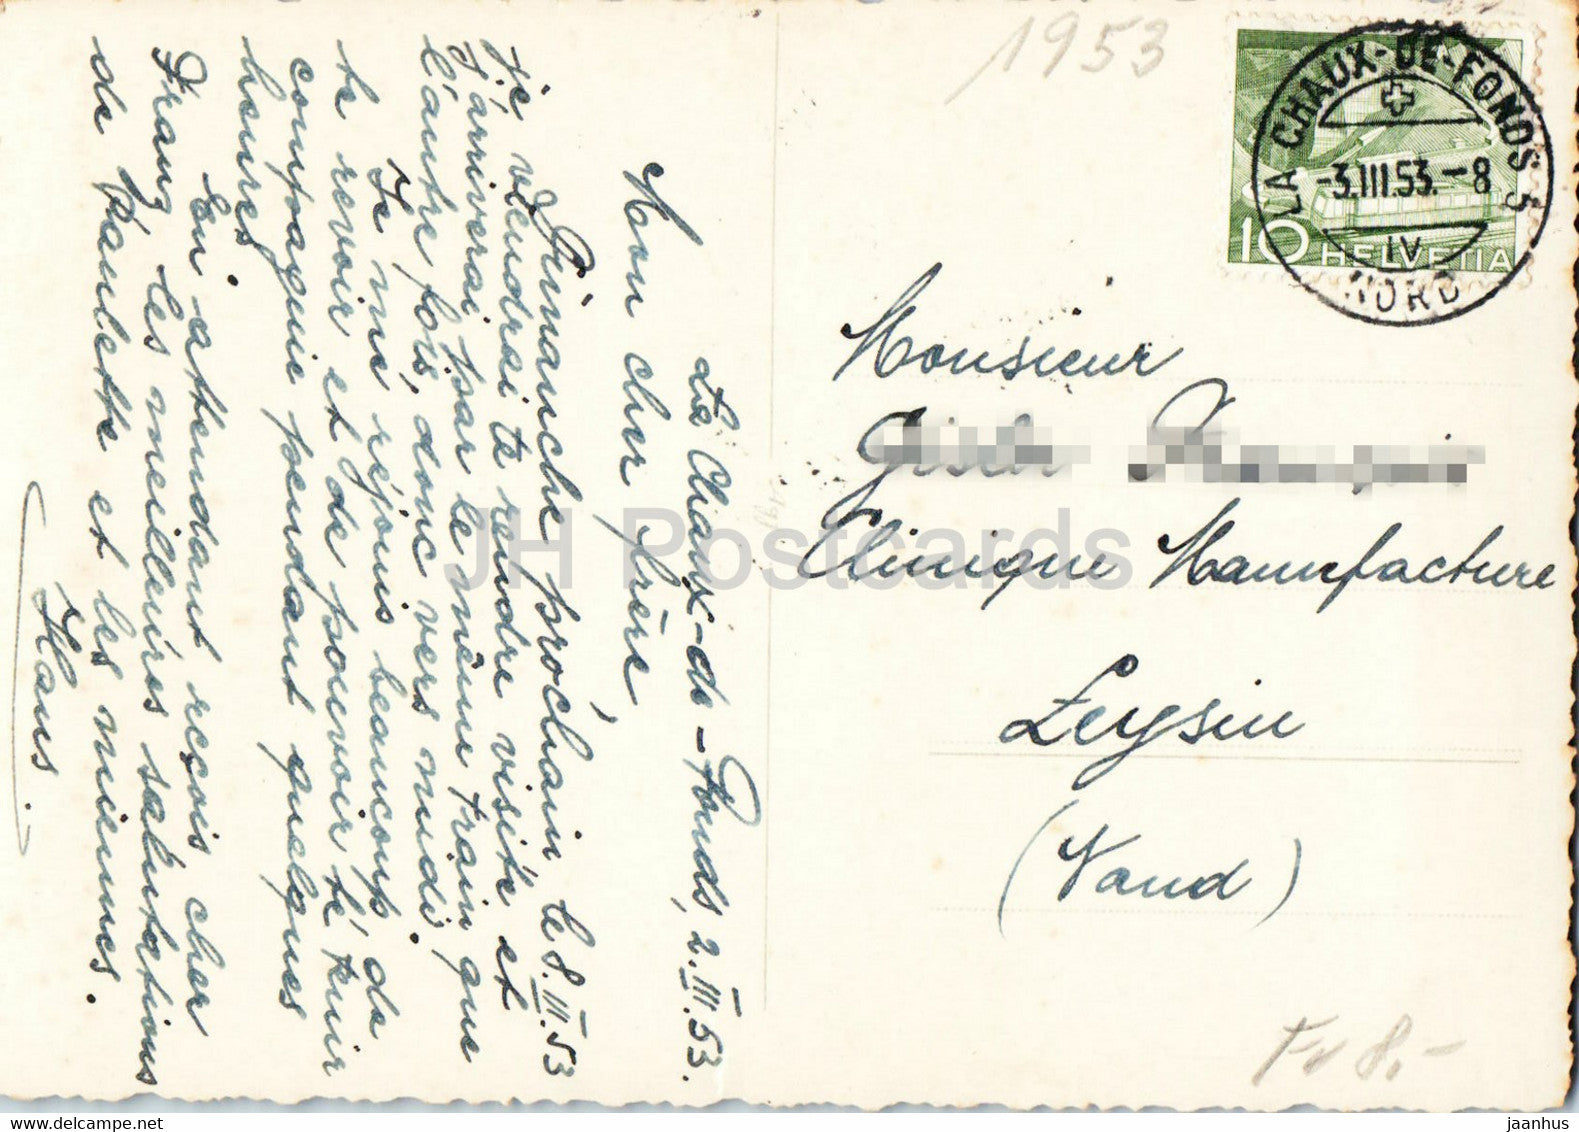 La Chaux-de-Fonds, 2.III.53.
Mon cher frère,
Dimanche prochain le 8.III.53
je viendrai te rendre visite et
j'arriverai par le même train que
l'autre fois, donc vers midi.
Je me réjouis beaucoup de
te revoir et de pouvoir te tenir
compagnie pendant quelques
heures.
En attendant reçois cher
Franz les meilleures salutations
de Paulette et les miennes.
Hans.
1953
LA CHAUX-DE-FONDS 3
-3.III.53.-8
IV
NORD
10 HELVETIA
Monsieur
Clinique Manufacture
Leysin
(Vaud)
Fr 8.-
JH Postcards
www.delcampe.net
jaanhus